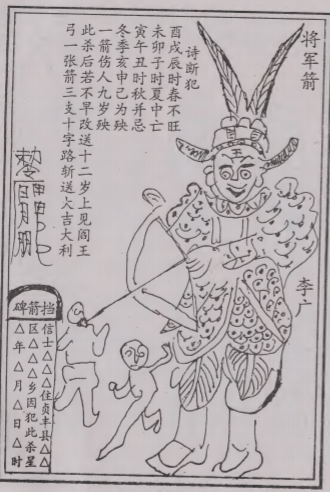 将军箭
诗断犯
酉戌辰时春不旺
未卯子时夏中亡
寅午丑时秋并忌
冬季亥申己为殃
一箭伤人九岁殃
此杀后若不早改送十二岁上见阎王
弓一张箭三支十字路斩送大吉大利
李广
挡箭碑
信士△△△住贞丰县△△
区△△△乡因犯此杀星
△年△月△日△时